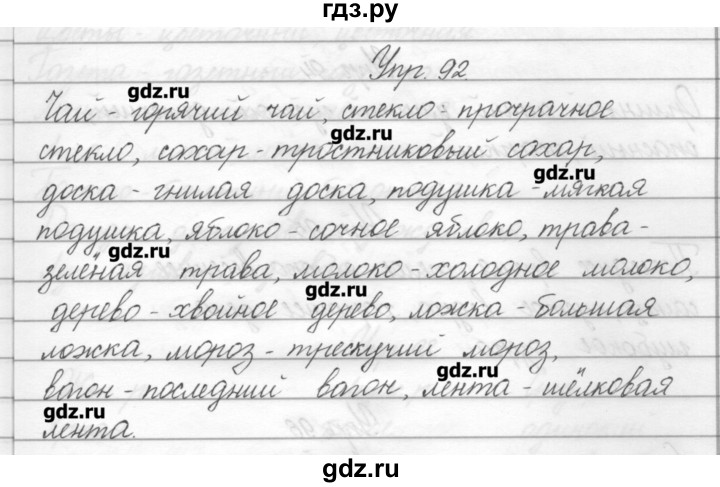 гдз.ру
Упр. 92
gdz.ru
Чай - горячий чай, стекло - прозрачное
gdz.ru
стекло, сахар - тростниковый сахар,
gdz.ru
доска - гнилая доска, подушка - мягкая
подушка, яблоко - сочное яблоко, трава -
gdz.ru
зелёная трава, молоко - холодное молоко,
gdz.ru
дерево - хвойное дерево, ложка - большая
ложка, мороз - трескучий мороз,
gdz.ru
вагон - последний вагон, лента - шёлковая
gdz.ru
лента.
gdz.ru